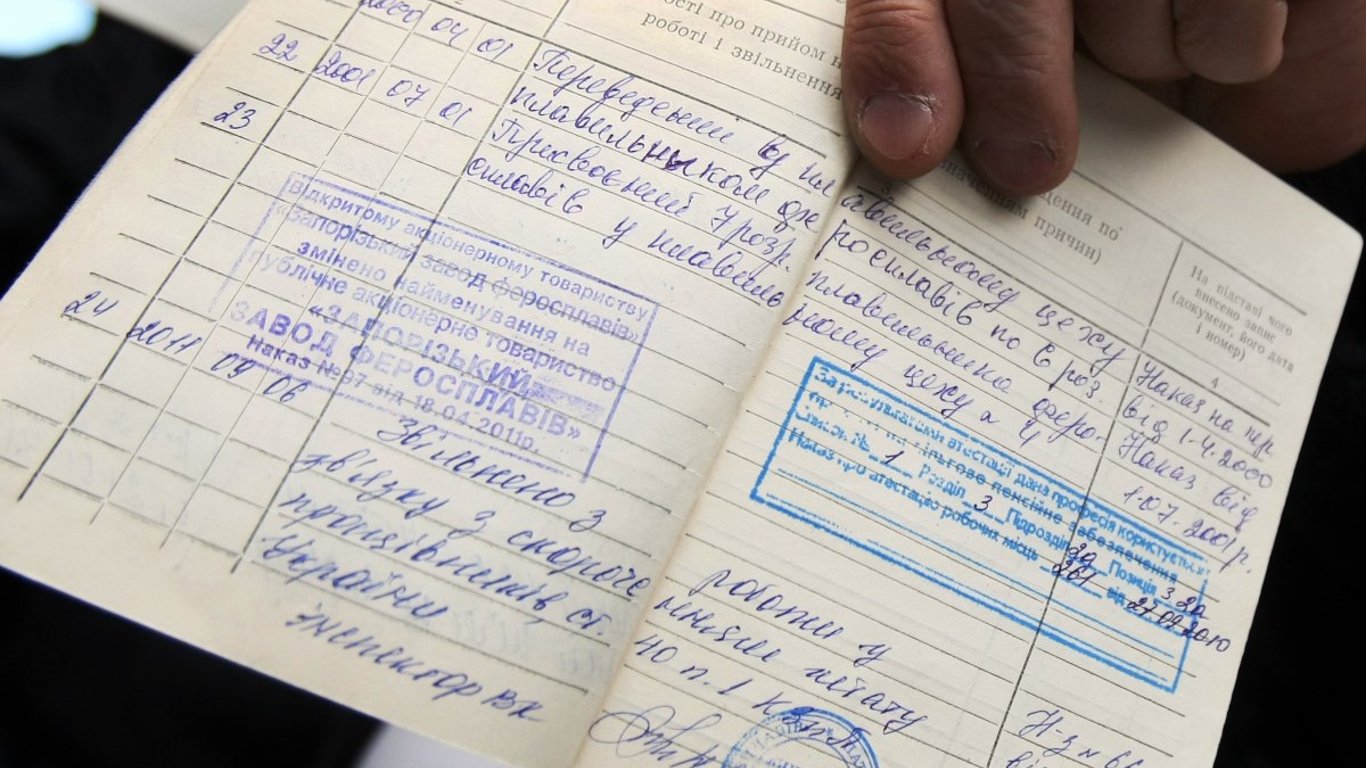 ості про прийом н
роботі і звільнення
значенням причин)
щення по
На підставі чого
внесено запис
(документ, його дата
і номер)
4
22 2000 04 01 Переведений у пл авильному цеху
плавильником фе росплавів по 6 роз. Наказ на пер.
від 1-4.2000
23 2001 07 01 Присвоєний 7 розр. плавильника феро- Наказ від
сплавів у плавиль ному цеху № 4 1.07.2001р.
Відкритому акціонерному товариству
«Запорізький завод феросплавів»
змінено найменування на
публічне акціонерне товариство
«ЗАПОРІЗЬКИЙ
ЗАВОД ФЕРОСПЛАВІВ»
Наказ № 97 від 18.04.2011р.
За результатами атестації дана професія користується
пільгове пенсійне забезпечення
Список № 1 Розділ 3 Підрозділ 2а Позиція 3.2а
Наказ про атестацію робочих місць 261 від 27.09.2010
24 2011 09 06 Звільнено з роботи у
звязку з скороче нням штату
працівників, ст. 40 п. 1 КЗпП
України
Інспектор ВК
Н-з №